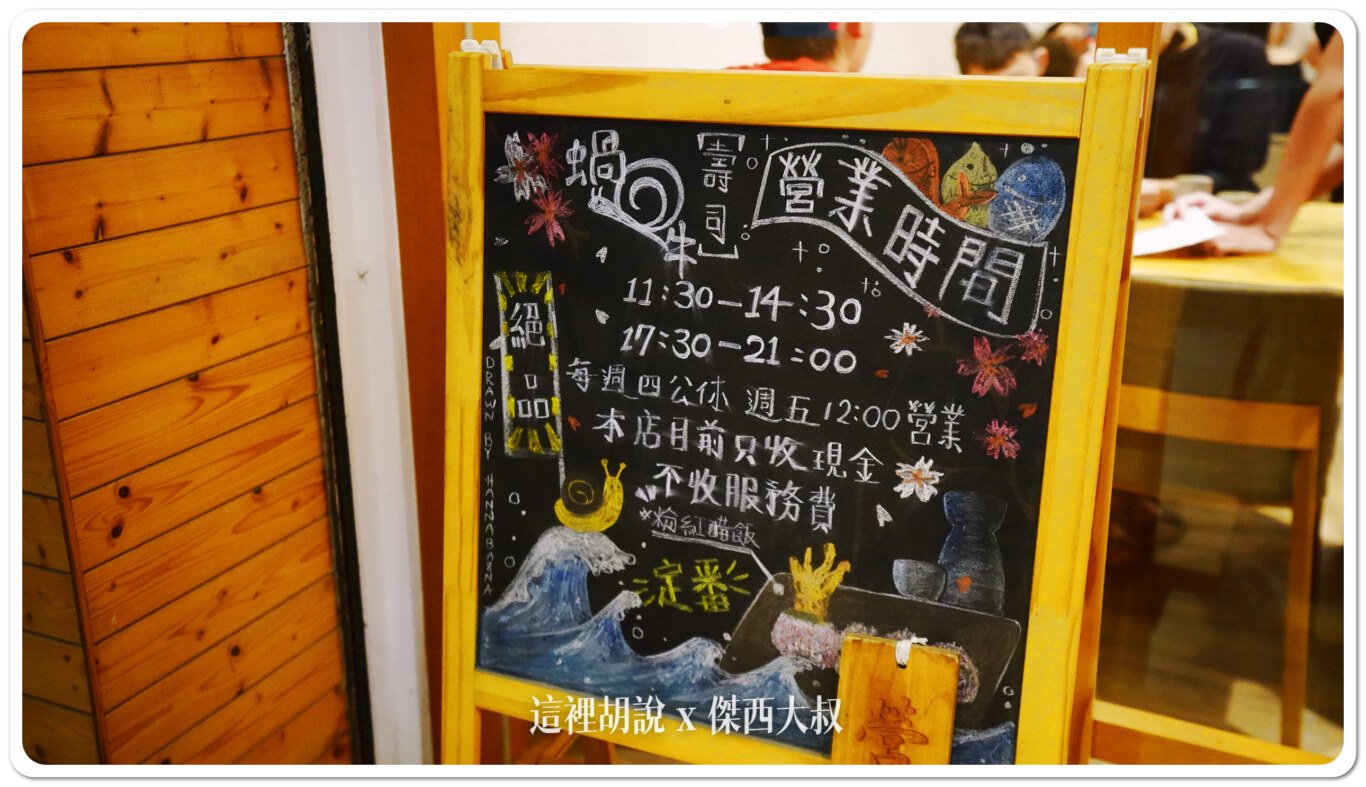 蝸牛
【壽司】
營業時間
11:30-14:30
17:30-21:00
每週四公休 週五12:00營業
本店目前只收現金
不收服務費
絕品
DRAWN BY HANNABANA
粉紅醋飯
淀番
營
這裡胡說 x 傑西大叔